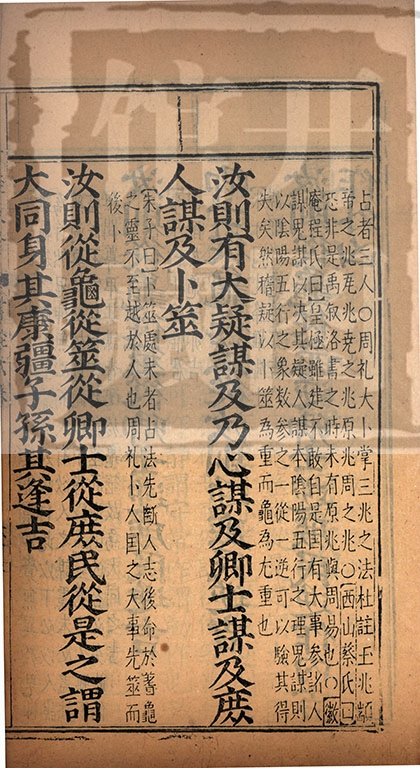 占者三人○周礼大卜掌三兆之法杜註玉兆顓
帝之兆瓦兆尭之兆原兆周之兆○西山蔡氏曰
恐非是禹叙洛書之時未有原兆與周易也○徽
庵程氏曰皇極雖建不敢自是国有大事参諸人
謀鬼謀以决其疑人謀本陰陽五行之理鬼謀則
以陰陽五行之象数参之一從一逆可以驗其得
失矣然稽疑以卜筮為重而龜為尤重也
汝則有大疑謀及乃心謀及卿士謀及庻
人謀及卜筮
朱子曰卜筮處末者占法先断人志後命於蓍龜
之靈不至越於人也周礼卜人国之大事先筮而
後卜
汝則從龜從筮從卿士從庻民從是之謂
大同身其康彊子孫其逢吉